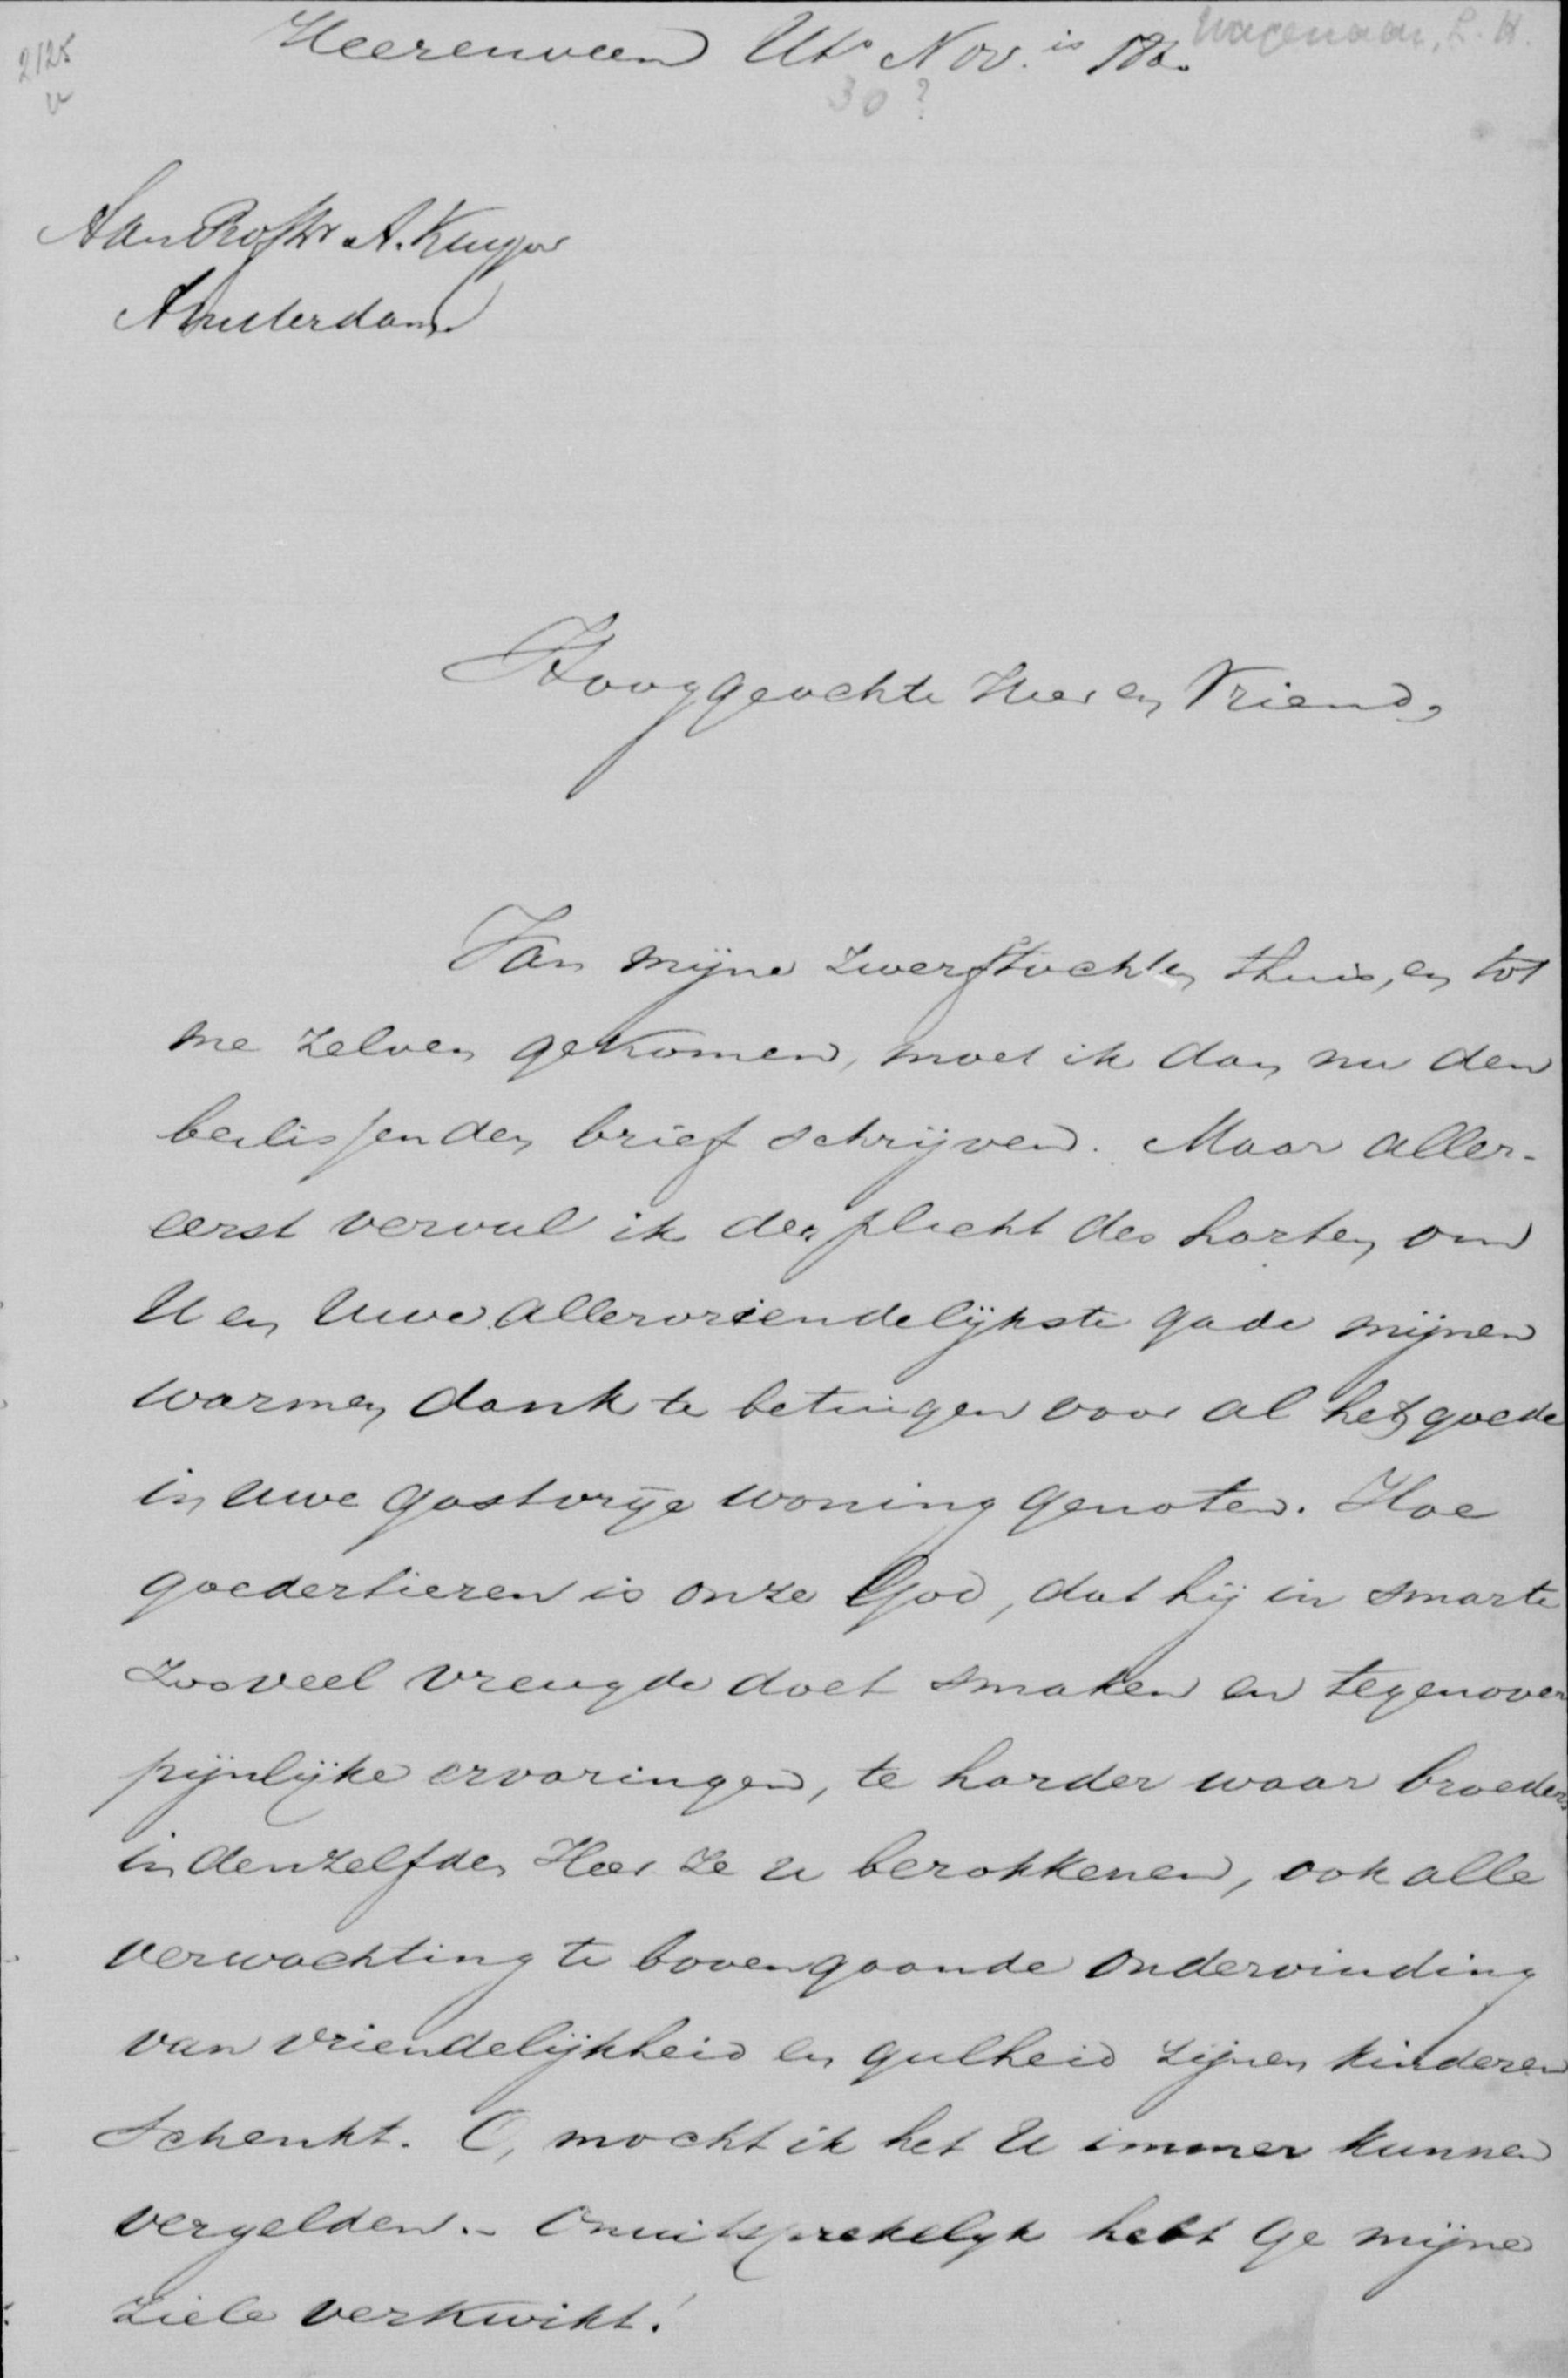 2125
Heerenveen Ut° Nov.is '86. Wagenaar, L. H.
30?
Aan Profdr A. Kuyper
Amsterdam
Hooggeachte Heer en Vriend,
Van mijne zwerftochten thuis, en tot
me zelven gekomen, moet ik dan nu den
beslissenden brief schrijven. Maar aller-
eerst vervul ik den plicht des harten om
U en Uwe allervriendelijkste gade mijnen
warmen dank te betuigen voor al het goede
in Uwe gastvrije woning genoten. Hoe
goedertieren is onze God, dat hij in smarte
zooveel vreugde doet smaken en tegenover
pijnlijke ervaringen, te harder waar broeders
in denzelfden Heer ze u berokkenen, ook alle
verwachting te boven gaande ondervinding
van vriendelijkheid en gulheid zijnen kinderen
schenkt. O, mocht ik het U immer kunnen
vergelden. - Onuitsprekelijk hebt Ge mijne
ziele verkwikt!